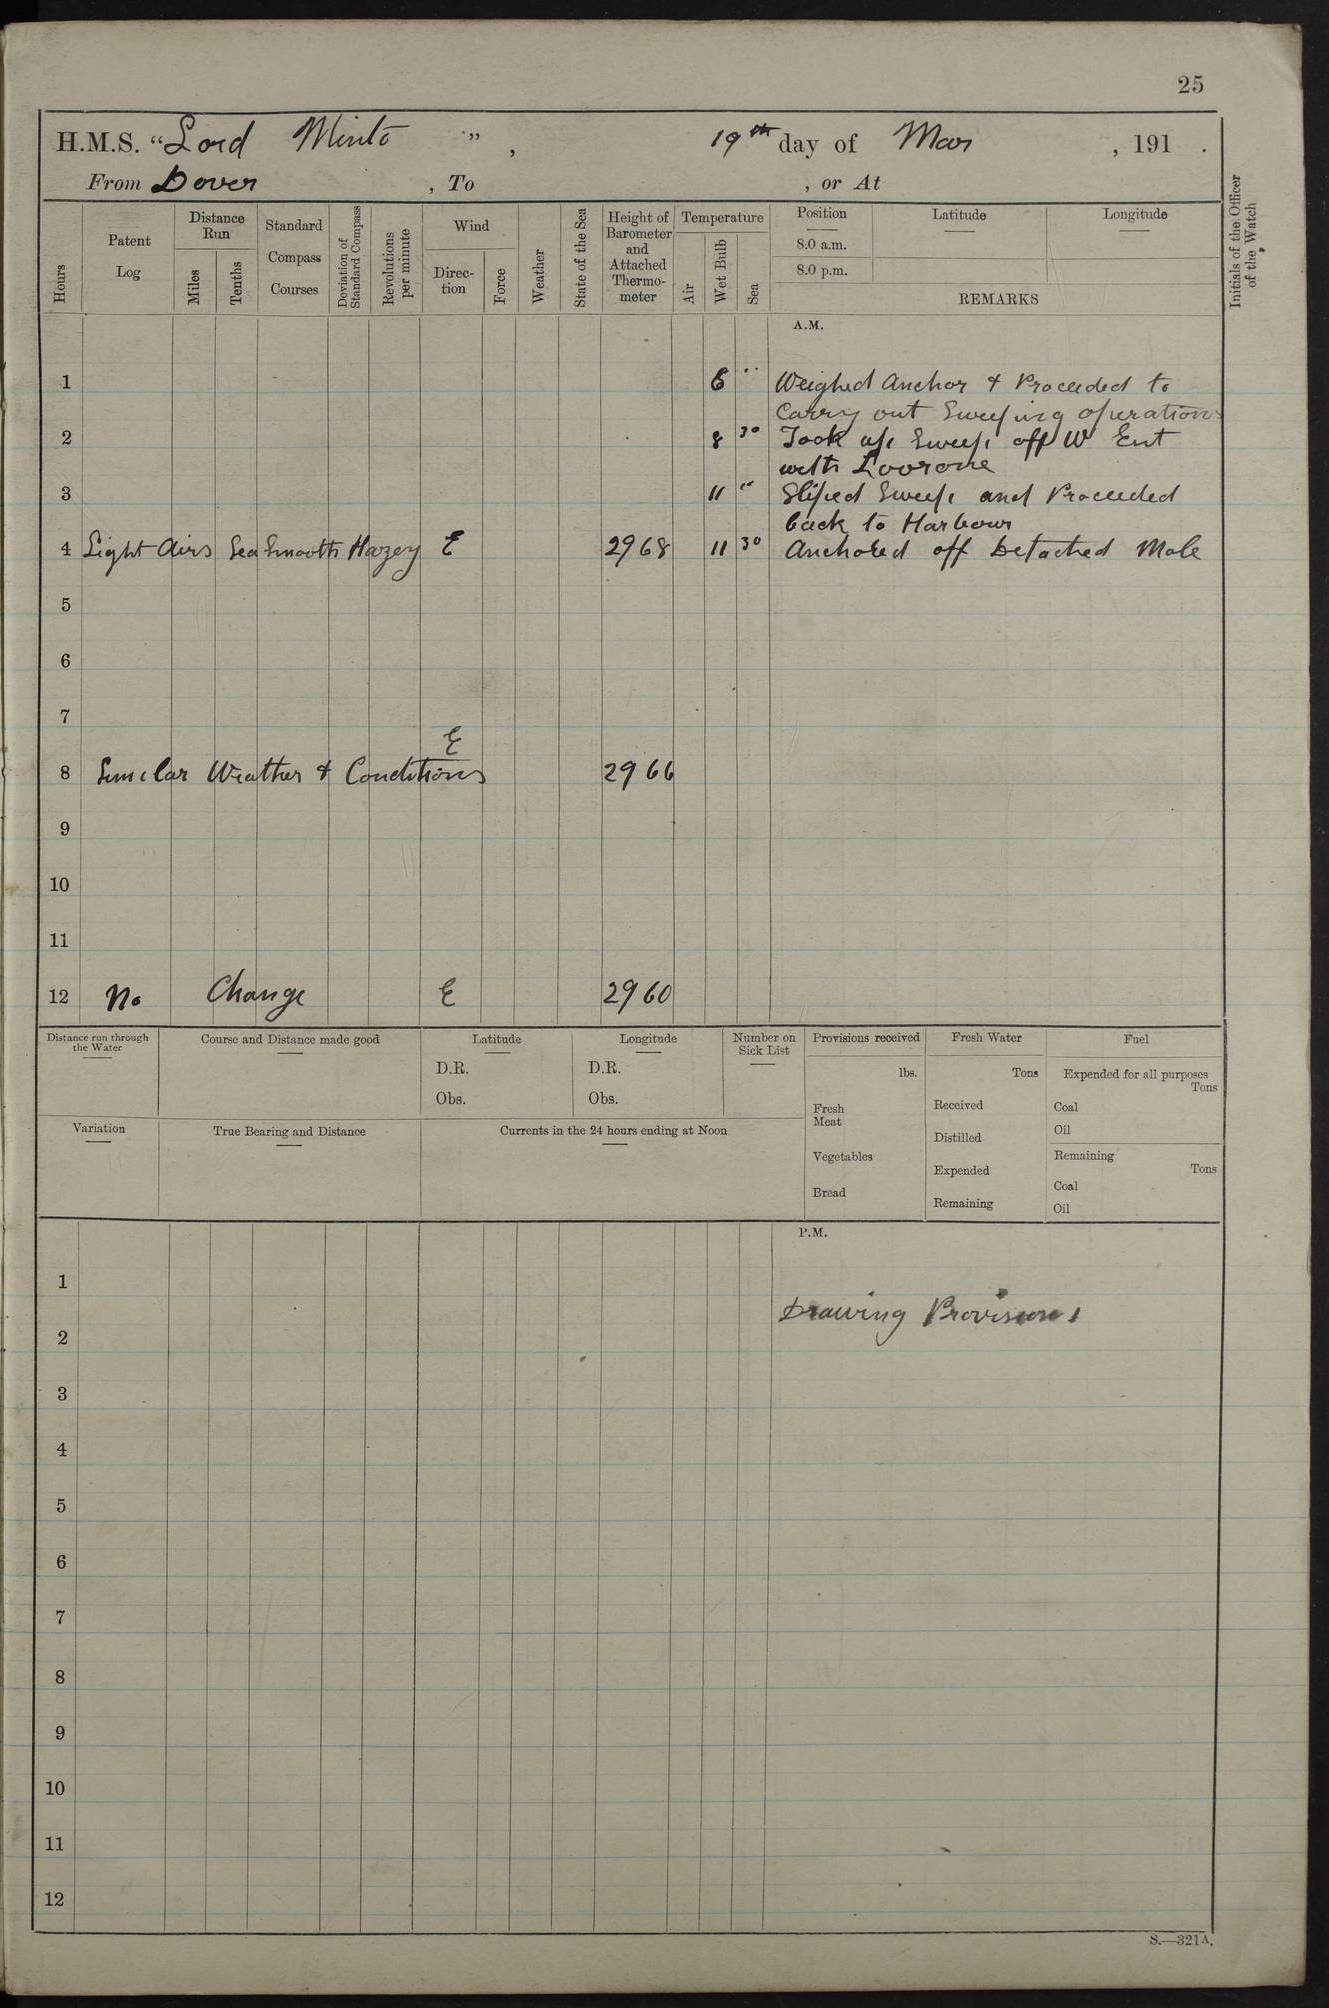 25
H.M.S. “Lord Minto ” , 19th day of Mar , 191 .
From Dover , To , or At
Hours
Patent
Log
Distance
Run
Miles
Tenths
Standard
Compass
Courses
Deviation of
Standard Compass
Revolutions
per minute
Wind
Direc-
tion
Force
Weather
State of the Sea
Height of
Barometer
and
Attached
Thermo-
meter
Temperature
Air
Wet Bulb
Sea
Position
8.0 a.m.
8.0 p.m.
Latitude
Longitude
REMARKS
Initials of the Officer
of the Watch
A.M.
1 6 " Weighed Anchor & Proceeded to
Carry out Sweeping operations
2 8 30 Took up Sweep off W Ent
with
3 11 " Sliped Sweep and Proceeded
back to Harbour
4 Light Airs Sea Smooth Hazey E 2968 11 30 Anchored off Detached Mole
5
6
7
E
8 Similar Weather & Conditions 2966
9
10
11
12 No Change E 2960
Distance run through
the Water
Course and Distance made good
Latitude
D.R.
Obs.
Longitude
D.R.
Obs.
Number on
Sick List
Provisions received
lbs.
Fresh
Meat
Vegetables
Bread
Fresh Water
Tons
Received
Distilled
Expended
Remaining
Fuel
Expended for all purposes
Tons
Coal
Oil
Remaining
Tons
Coal
Oil
Variation
True Bearing and Distance
Currents in the 24 hours ending at Noon
P.M.
1
Drawing Provisions
2
3
4
5
6
7
8
9
10
11
12
S.—321A.